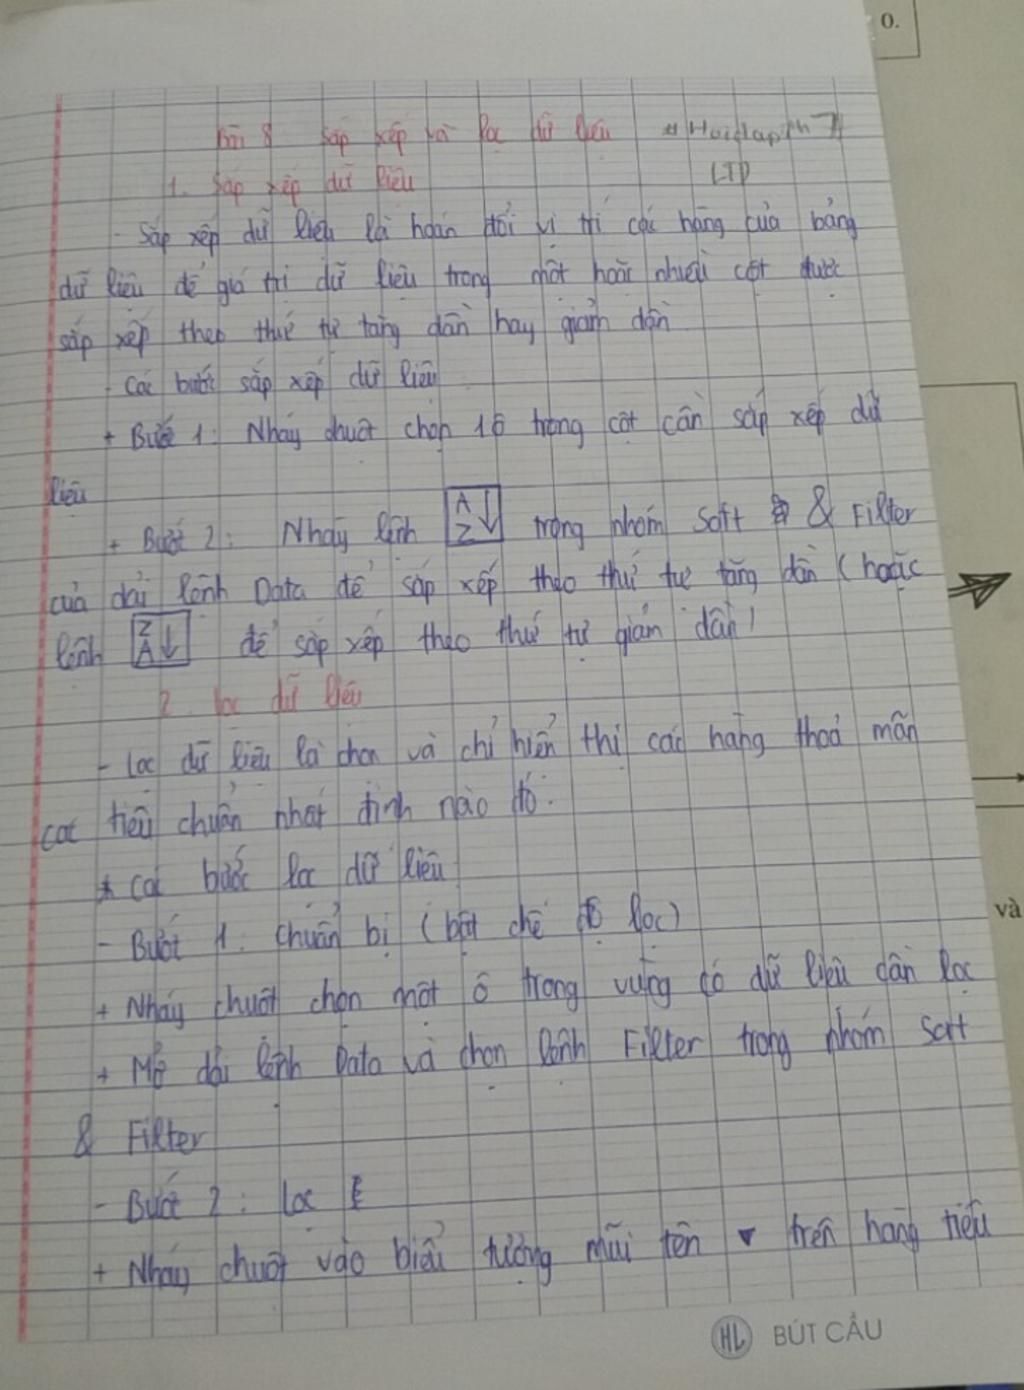 0.
Bài 8 sắp xếp và lọc dữ liệu #Hoidap
LTP
1. Sắp xếp dữ liệu
- Sắp xếp dữ liệu là hoán đổi vị trí các hàng của bảng
dữ liệu để giá trị dữ liệu trong một hoặc nhiều cột được
sắp xếp theo thứ tự tăng dần hay giảm dần
- Các bước sắp xếp dữ liệu
+ Bước 1: Nháy chuột chọn 1 ô trong cột cần sắp xếp dữ
liệu
+ Bước 2: Nháy lệnh A Z ↓ trong nhóm Soft & Filter
của dải lệnh Data để sắp xếp theo thứ tự tăng dần (hoặc
lệnh Z A ↓ để sắp xếp theo thứ tự giảm dần)
2. lọc dữ liệu
- Lọc dữ liệu là chọn và chỉ hiển thị các hàng thoả mãn
các tiêu chuẩn nhất định nào đó.
* Các bước lọc dữ liệu
- Bước 1: Chuẩn bị (bật chế độ lọc)
+ Nháy chuột chọn một ô trong vùng có dữ liệu cần lọc
+ Mở dải lệnh Data và chọn lệnh Filter trong nhóm Sort
& Filter
- Bước 2: Lọc
+ Nháy chuột vào biểu tượng mũi tên ▼ trên hàng tiêu
và
HL BÚT CẦU